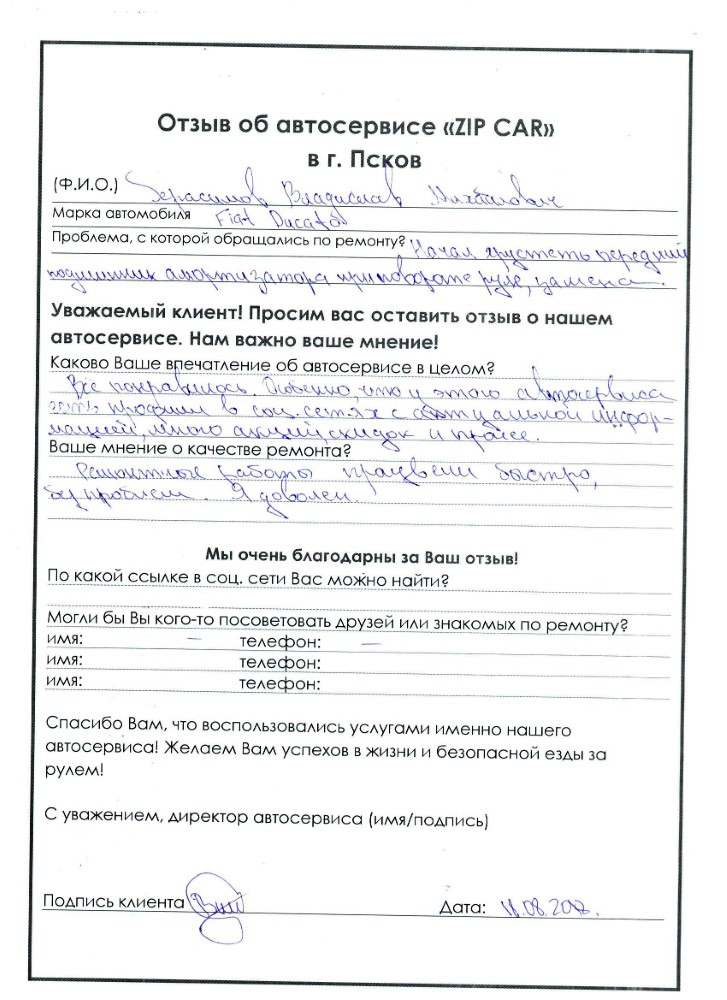 Отзыв об автосервисе «ZIP CAR»
в г. Псков
(Ф.И.О.) Герасимов Владислав Михайлович
Марка автомобиля Fiat Ducato
Проблема, с которой обращались по ремонту? Начал хрустеть передний
подшипник амортизатора при повороте руля, замена.
Уважаемый клиент! Просим вас оставить отзыв о нашем
автосервисе. Нам важно ваше мнение!
Каково Ваше впечатление об автосервисе в целом?
Все понравилось. Особенно, что у этого автосервиса
есть профили в соц. сетях с актуальной инфор-
мацией, много акций, скидок и прайс.
Ваше мнение о качестве ремонта?
Ремонтные работы произвели быстро,
без проблем. Я доволен.
Мы очень благодарны за Ваш отзыв!
По какой ссылке в соц. сети Вас можно найти?
Могли бы Вы кого-то посоветовать друзей или знакомых по ремонту?
имя: — телефон: —
имя: телефон:
имя: телефон:
Спасибо Вам, что воспользовались услугами именно нашего
автосервиса! Желаем Вам успехов в жизни и безопасной езды за
рулем!
С уважением, директор автосервиса (имя/подпись)
Подпись клиента Дата: